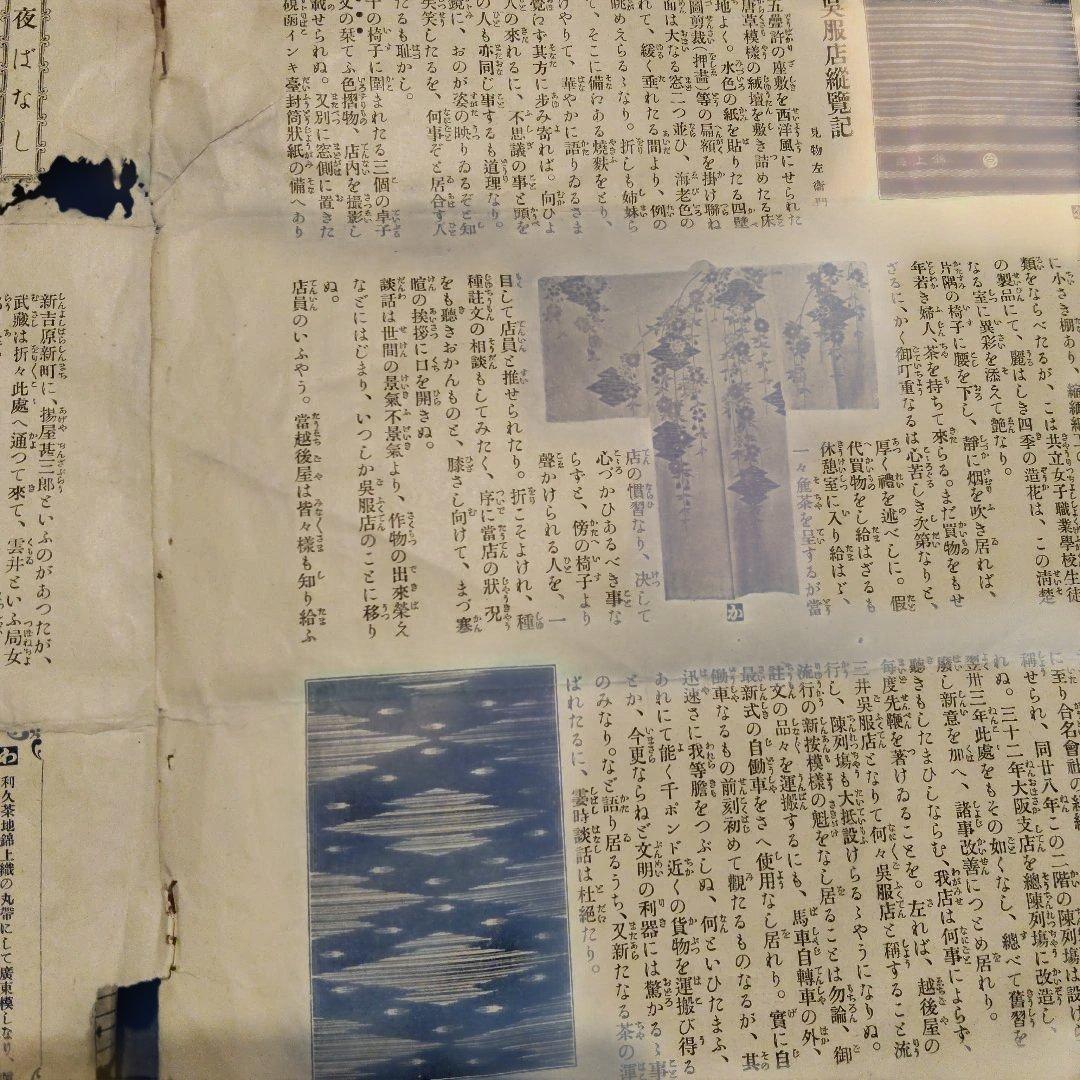 吳服店縱覽記
見物左衛門
五疊許の座敷を西洋風にせられた
唐草模樣の絨壇を敷き詰めたる床
地よく。水色の紙を貼りたる四壁
圖剪裁、押畫)等の扁額を掛け聯ね
面は大なる窓二つ並ひ、海老色の
れて、緩く垂れたる間より、例の
眺めえらるゝなり。折しも姉妹ら
て、そこに備わある燒麩をとり、
けやりて、華やかに語りゐるさま
覺わず其方に步み寄れば。向ひよ
人の來れるに、不思議の事と頭を
の人も亦同じ事するも道理なり。
鏡に、おのが姿の映りゐるぞと知
失笑したるを、何事ぞと居合す人
たるも恥かし。
十の椅子に圍まれたる三個の卓子
文の栞てふ色摺物、店内を撮影し
載せられぬ。又別に窓側に置きた
硯函インキ臺封筒狀紙の備へあり
に小さき棚あり、
類をならべたるが、こは共立女子職業學校生徒
の製品にて、麗はしき四季の造花は、この淸楚
なる室に異彩を添えて艶なり。
片隅の椅子に腰を下し、靜に烟を吹き居れば、
年若き婦人、茶を持ちて來らる。まだ買物をもせ
ざるに、かく御叮重なるは心苦しき次第なりと、
厚く禮を述べしに。假
代買物をし給はざるも
休憩室に入り給はゞ、
一々麁茶を呈するが當
か
店の慣習なり、決して
心づかひあるべき事な
らずと、傍の椅子より
聲かけられる人を、一
目して店員と推せられたり。折こそよけれ、種
種註文の相談もしてみたく、序に當店の狀況
をも聽きおかんものと、膝さし向けて、まづ寒
暄の挨拶に口を開きぬ。
談話は世間の景氣不景氣より、作物の出來榮え
などにはじまり、いつしか吳服店のことに移り
ぬ。
店員のいふやう。當越後屋は皆々樣も知り給ふ
に至り合名會社の組
稱せられ、同廿八年この二階の陳列塲は設け
れぬ。三十二年大阪支店を總陳列塲に改造し、
翌卅三年此處をもその如くなし、總べて舊習を
廢し新意を加へ、諸事改善につとめ居れり。
聽きもしたまひしならむ、我店は何事によらず、
每度先鞭を著けゐることを。左れば、越後屋の
三井吳服店となりて何々吳服店と稱すること流
行し、陳列塲も大抵設けらるゝやうになりぬ。
流行の新按模樣の魁をなし居ることは勿論、御
註文の品々を運搬するにも、馬車自轉車の外、
最新式の自働車をさへ使用なし居れり。實に自
働車なるもの前刻初めて觀たるものなるが、其
迅速さに我等膽をつぶしぬ、何といひたまふ、
あれにて能く千ポンド近くの貨物を運搬び得る
とか、今更ならねど文明の利器には驚かるゝ事
のみなり。など語り居るうち、又新たなる茶の運
ばれたるに、霎時談話は杜絕たり。
夜ばなし
新吉原新町に、揚屋甚三郎といふのがあつたが、
武藏は折々此處へ通つて來て、雲井といふ局女
わ
利久茶地錦上織の丸帶にして廣東模しなり、